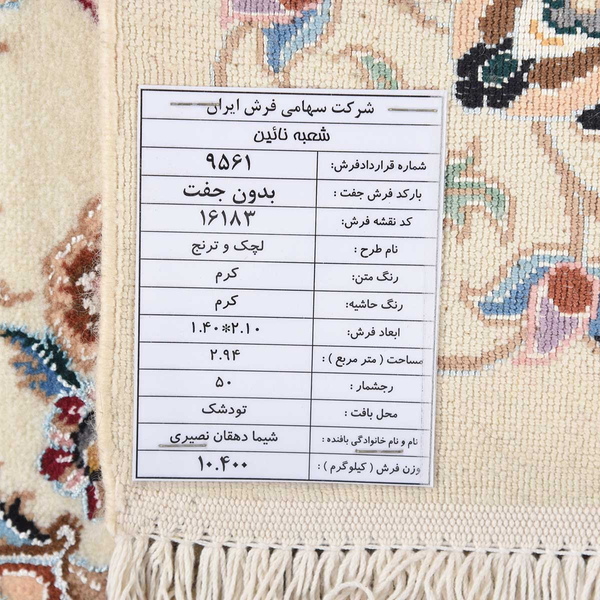 شرکت سهامی فرش ایران
شعبه نائین
شماره قراردادفرش: ۹۵۶۱
بارکد فرش جفت : بدون جفت
کد نقشه فرش: ۱۶۱۸۳
نام طرح : لچک و ترنج
رنگ متن: کرم
رنگ حاشیه: کرم
ابعاد فرش: ۱.۴۰*۲.۱۰
مساحت ( متر مربع ) : ۲.۹۴
رجشمار : ۵۰
محل بافت : تودشک
نام و نام خانوادگی بافنده : شیما دهقان نصیری
وزن فرش ( کیلوگرم ) : ۱۰.۴۰۰